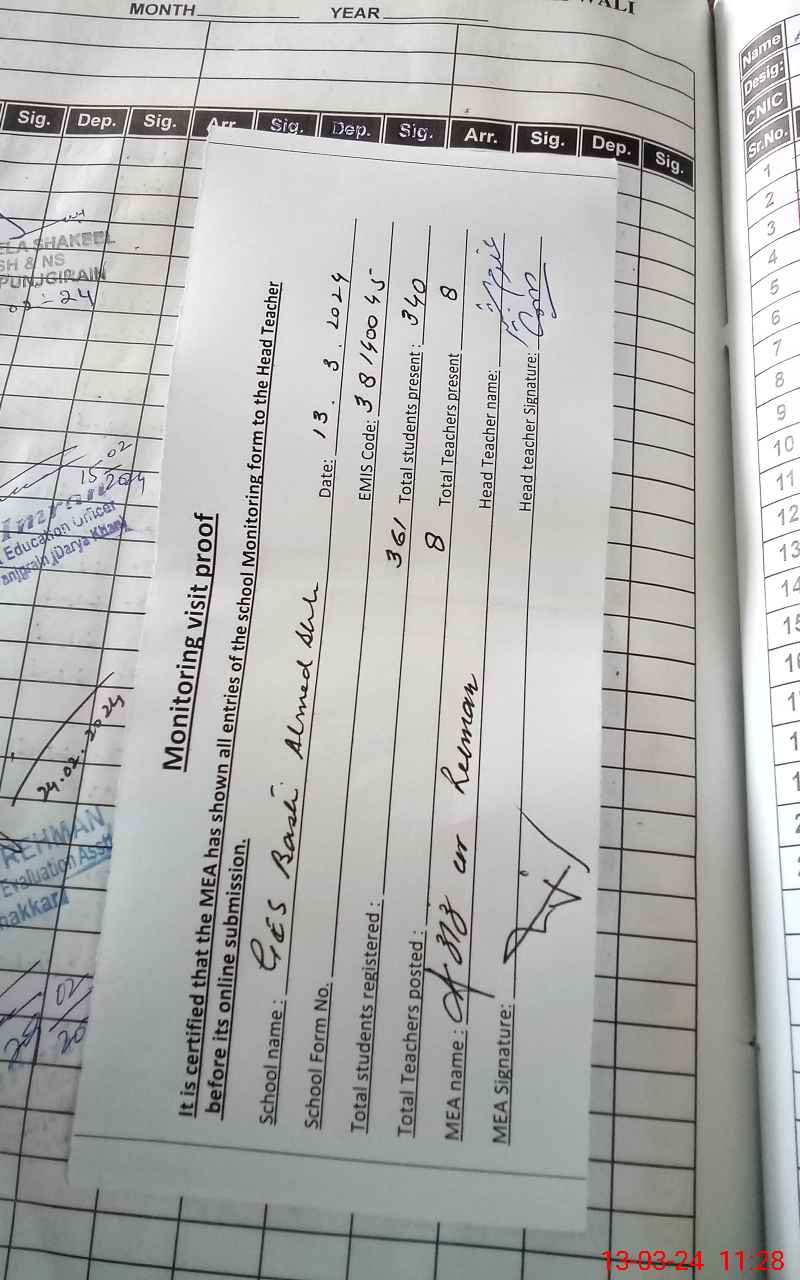 MONTH YEAR
WALI
Sig. Dep. Sig. Arr. Sig. Dep. Sig. Arr. Sig. Dep. Sig.
Monitoring visit proof
It is certified that the MEA has shown all entries of the school Monitoring form to the Head Teacher
before its online submission.
School name : GES Basti Ahmed Shah
School Form No. Date: 13 . 3 . 2024
Total students registered : 361 EMIS Code: 38140045
Total Teachers posted : 8 Total students present : 340
MEA name : Aziz ur Rehman Total Teachers present 8
MEA Signature: Head Teacher name:
Head teacher Signature:
ELA SHAKEEL
SH & NS
PUNJGIRAIN
02-24
15.02
2024
Imran
Education Officer
anjgrain (Darya Khan)
24.02.2024
REHMAN
Evaluation Asst
hakkar
02
20
Name
Desig:
CNIC
Sr.No.
1
2
3
4
5
6
7
8
9
10
11
12
13
14
15
13-03-24 11:28